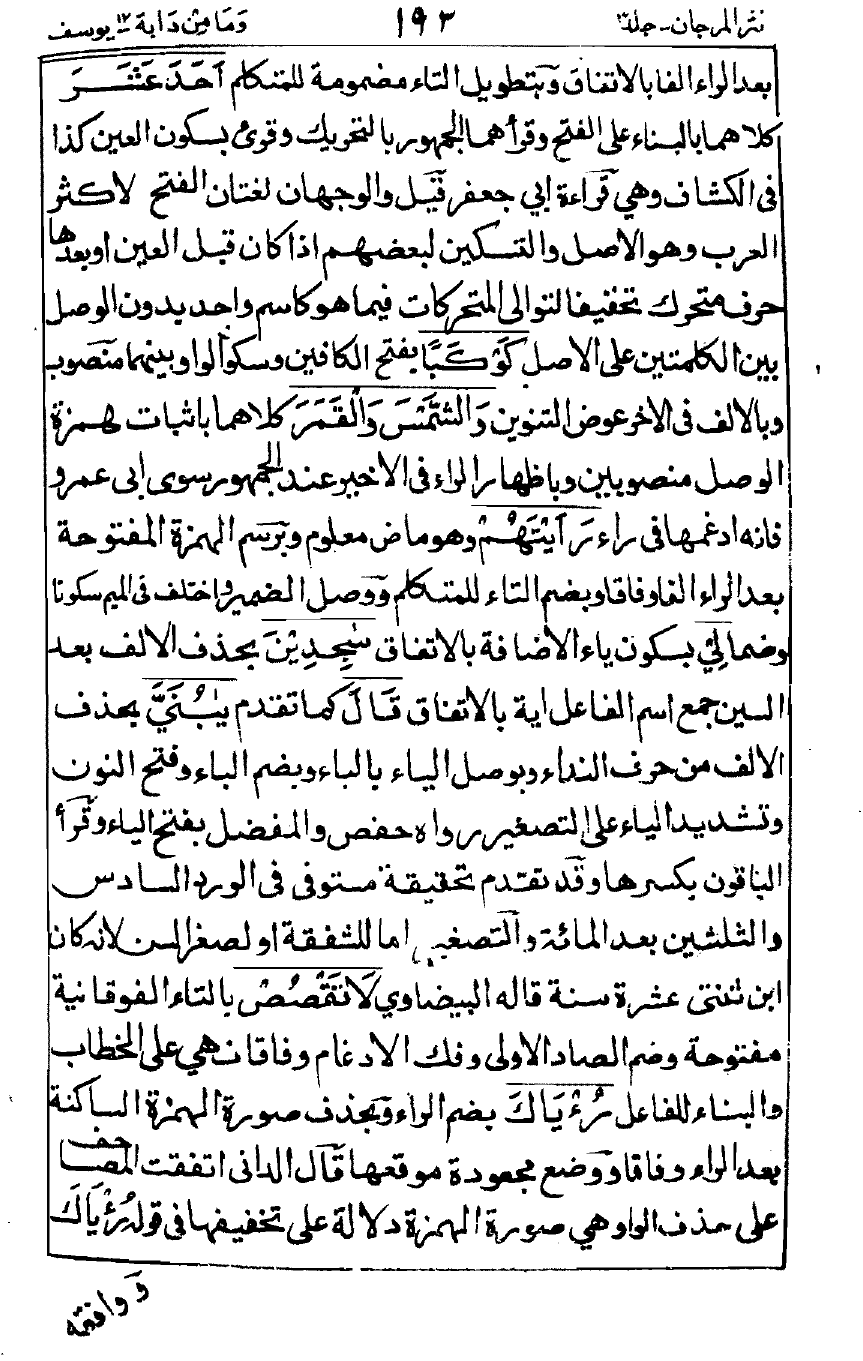 نثر المرجان - جلد ٣ ١٩٣ وَمَا مِنْ دَابة ١٢ يوسف
بعد الراء الفا بالاتفاق وبتطويل التاء مضمومة للمتكلم اَحَدَ عَشَرَ
كلاهما بالبناء على الفتح وقرأهما الجمهور بالتحريك وقرئ بسكون العين كذا
فى الكشاف وهي قراءة ابي جعفر قيل والوجهان لغتان الفتح لاكثر
العرب وهو الاصل والتسكين لبعضهم اذا كان قبل العين اوبعدها
حرف متحرك تخفيفا لتوالى المتحركات فيما هو كاسم واحد بدون الوصل
بين الكلمتين على الاصل كَوْكَبًا بفتح الكافين وسكون الواو بينهما منصوب
وبالالف فى الاخر عوض التنوين وَالشَّمْسَ وَالْقَمَرَ كلاهما باثبات همزة
الوصل منصوبين وباظهار الراء فى الاخير عند الجمهور سوى ابى عمرو
فانه ادغمها فى راء رَاَيْتُهُمْ وهو ماض معلوم وبرسم الهمزة المفتوحة
بعد الراء الفا وفاقا وبضم التاء للمتكلم ووصل الضمير واختلف فى الميم سكونا
وضما لِيْ بسكون ياء الاضافة بالاتفاق سٰجِدِيْنَ بحذف الالف بعد
السين جمع اسم الفاعل اية بالاتفاق قَالَ كما تقدم يٰبُنَيَّ بحذف
الالف من حرف النداء وبوصل الياء بالباء وبضم الباء وفتح النون
وتشديد الياء على التصغير رواه حفص والمفضل بفتح الياء وقرأ
الباقون بكسرها وقد تقدم تحقيقة مستوفى فى الورد السادس
والثلثين بعد المائة والتصغير اما للشفقة او لصغر السن لانه كان
ابن ثنتى عشرة سنة قاله البيضاوي لَا تَقْصُصْ بالتاء الفوقانية
مفتوحة وضم الصاد الاولى وفك الادغام وفاقا نهي على الخطاب
والبناء للفاعل رُءْيَاكَ بضم الراء وبحذف صورة الهمزة الساكنة
بعد الراء وفاقا ووضع مجعودة موقعها قال الدانى اتفقت المصاحف
على حذف الواو هي صورة الهمزة دلالة على تخفيفها فى قوله رُءْيَاكَ
ووافقه